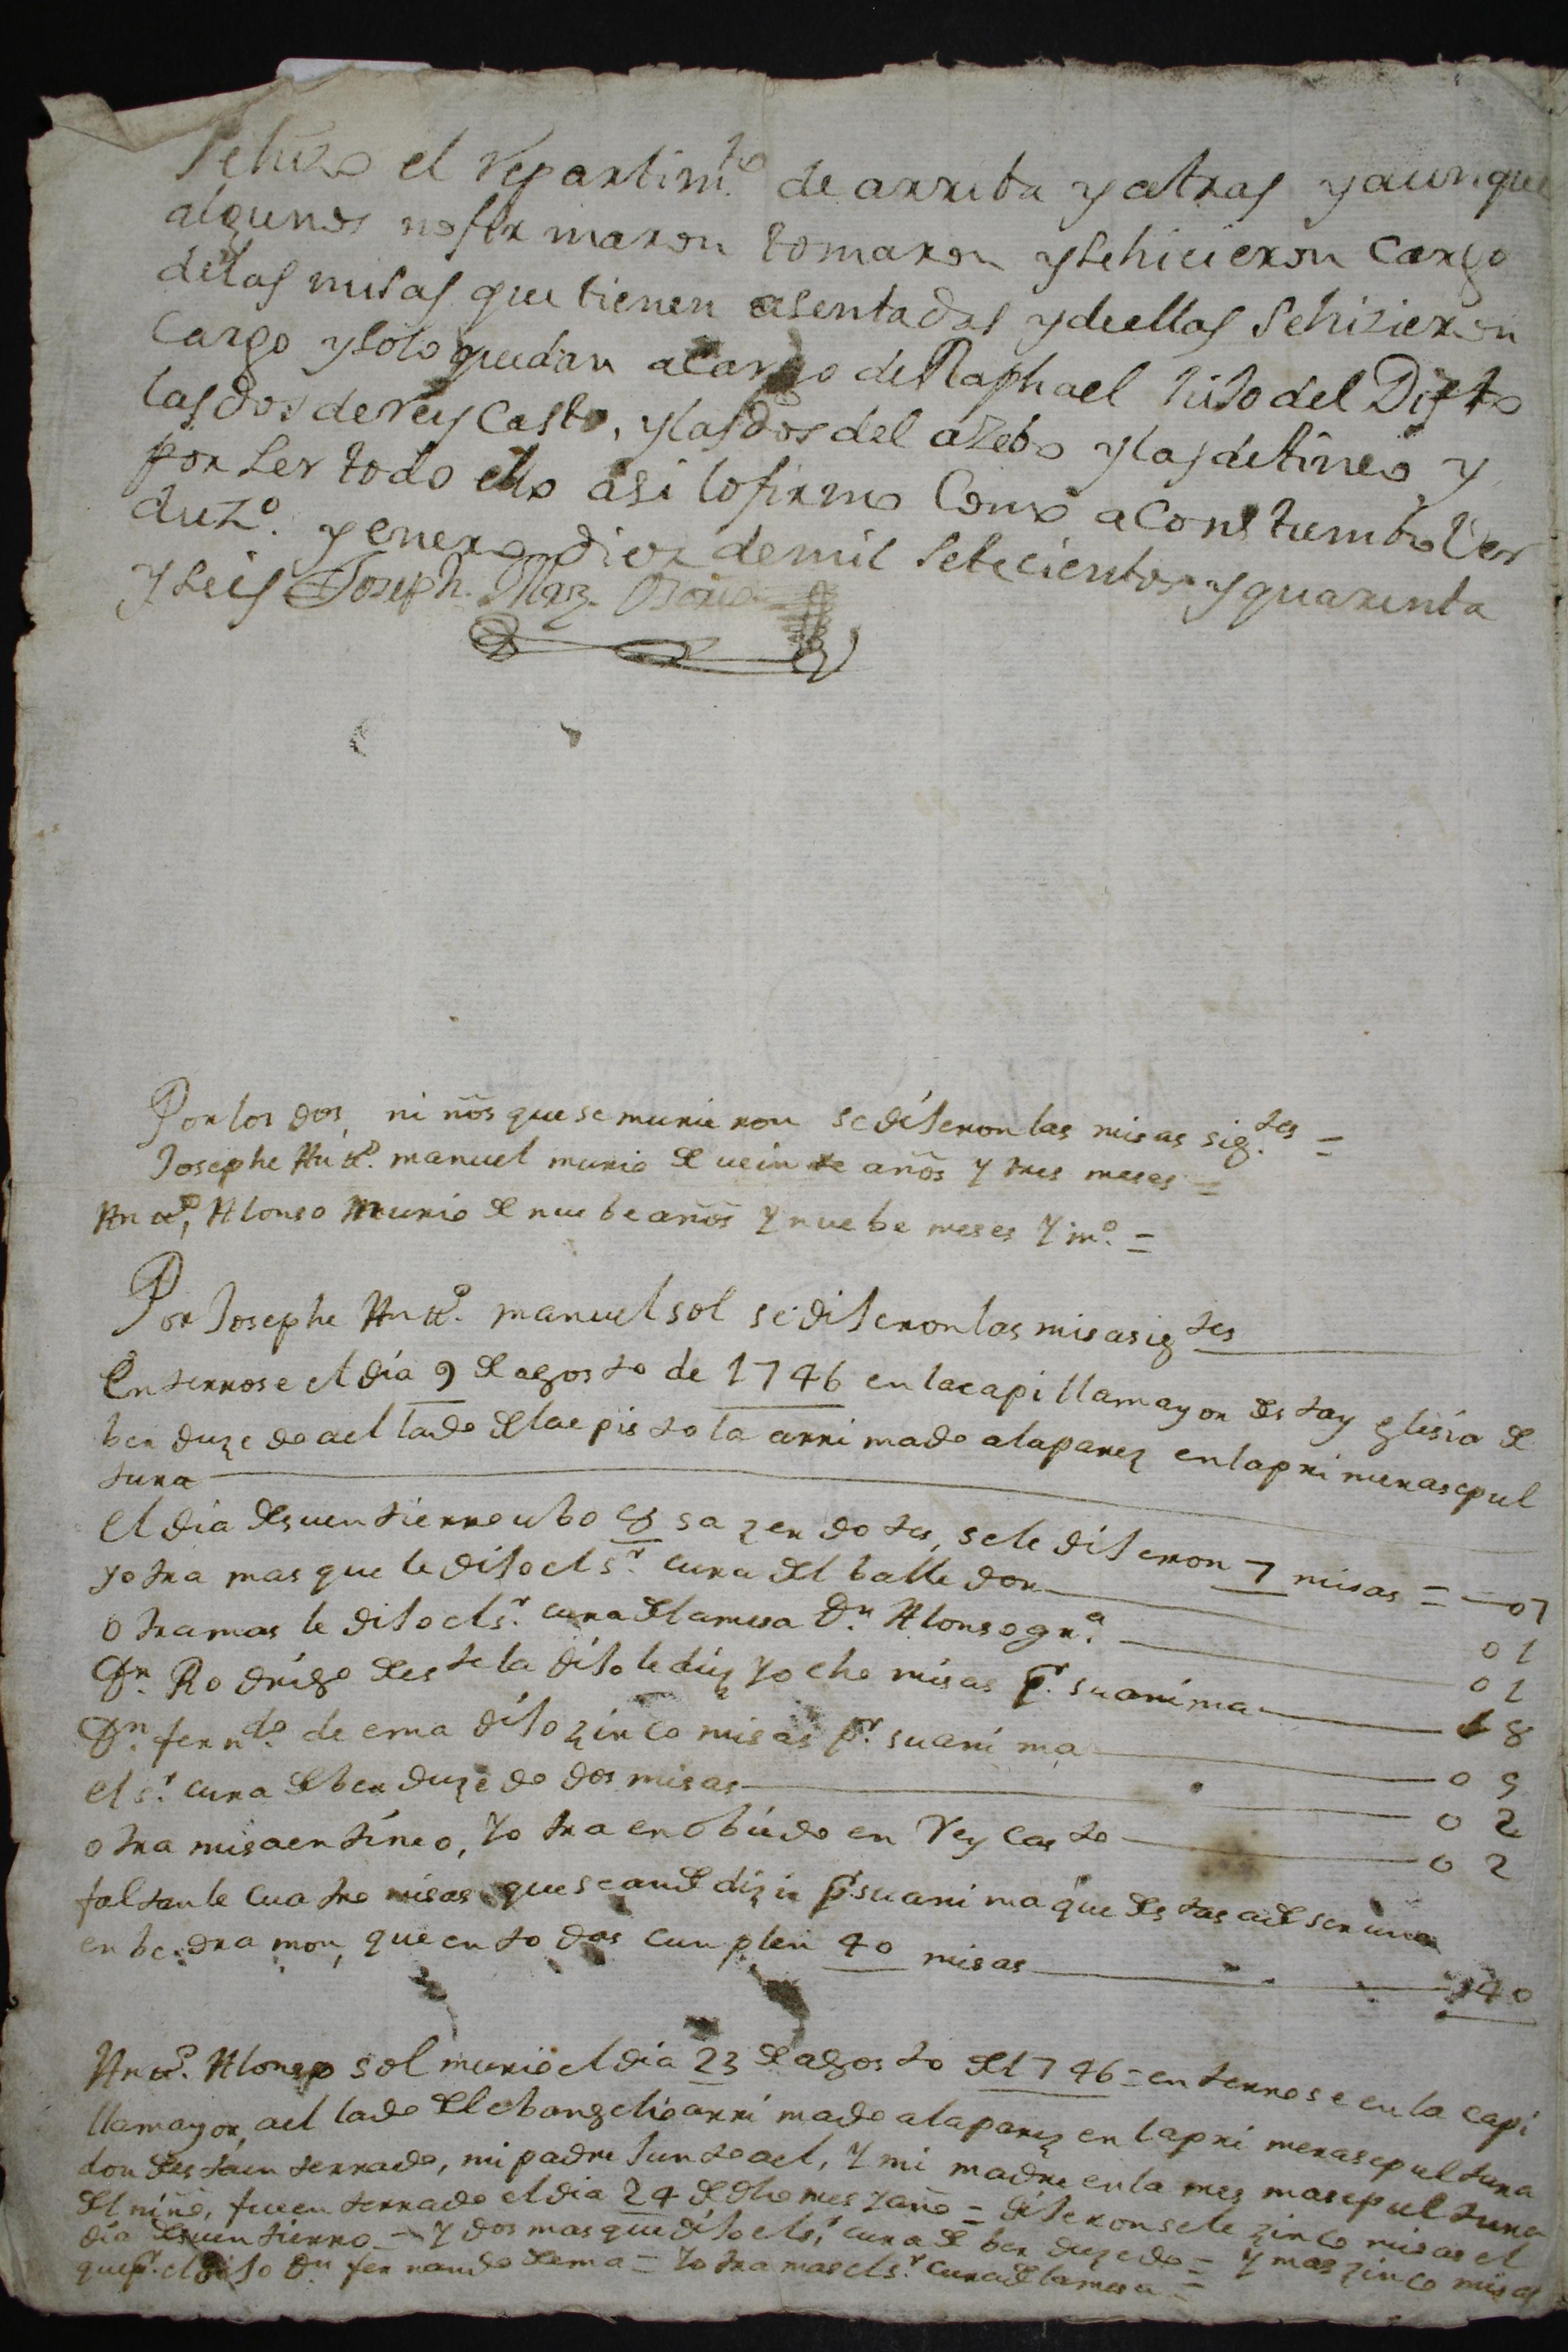 Sehizo el repartim.to de arriba y atras y aunque
algunos no firmaron tomaron y se hicieron Cargo
de las misas que tienen asentadas y de ellas se hizieron
Cargo y solo quedan a cargo de Raphael hijo del Difto
las dos de rey Casto, y las dos del azebo y las de tineo y
por ser todo ello asi lo firmo Como acostumbro Ver
duz.o y enero diez de mil setecientos y quarenta
y seis Joseph. Mrz.
Por los dos niños que se murieron se dijeron las misas sig.tes =
Josephe Antt.o manuel murio de veinte años y tres meses =
Antt.o Alonso murio de nuebe años y nuebe meses y m.o =
Por Josephe Antt.o manuel sol se dijeron las misasig tes
Enterrose el día 9 de agosto de 1746 en la capilla mayor desta yglesía de
berduzedo ael lado de la epistola arrimado a la parez en la primera sepul
tura
el día de su entierro ubo 8 sazerdotes, se le dijeron 7 misas = 07
yotra mas que le dijo el s.r cura del balledor 01
otra mas le dijo el s.r cura de la mesa D.n Alonso gr.a 01
D.n Rodrígo de estela díjo le díez y ocho misas p.r su anima 18
D.n fern.do de ema díjo zinco misas p.r su anima 05
el s.r cura de berduzedo dos misas 02
otra misa en tíneo, yotra en obíedo en rey casto 02
faltanle cuatro misas que se an de dizir p.r su anima que destas a de ser una
en bedramon, que en todas cumplen 40 misas 40
Antt.o Alonso sol murio el día 23 de agosto de 1746 = enterrose en la capi
lla mayor, ael lado del ebangelio arrimado a la parez en la primera sepultura
don desta enterrado, mi padre junto ael, y mi madre en la mez ma sepultura
del níño, fue enterrado el día 24 de dho mes y año = díjeronsele zinco misas el
día de su entierro = y dos mas que díjo el s.r cura de berduzedo = y mas zinco misas
que p.r el dijo D.n fernando de ema = yotra mas el s.r cura de la mesa =